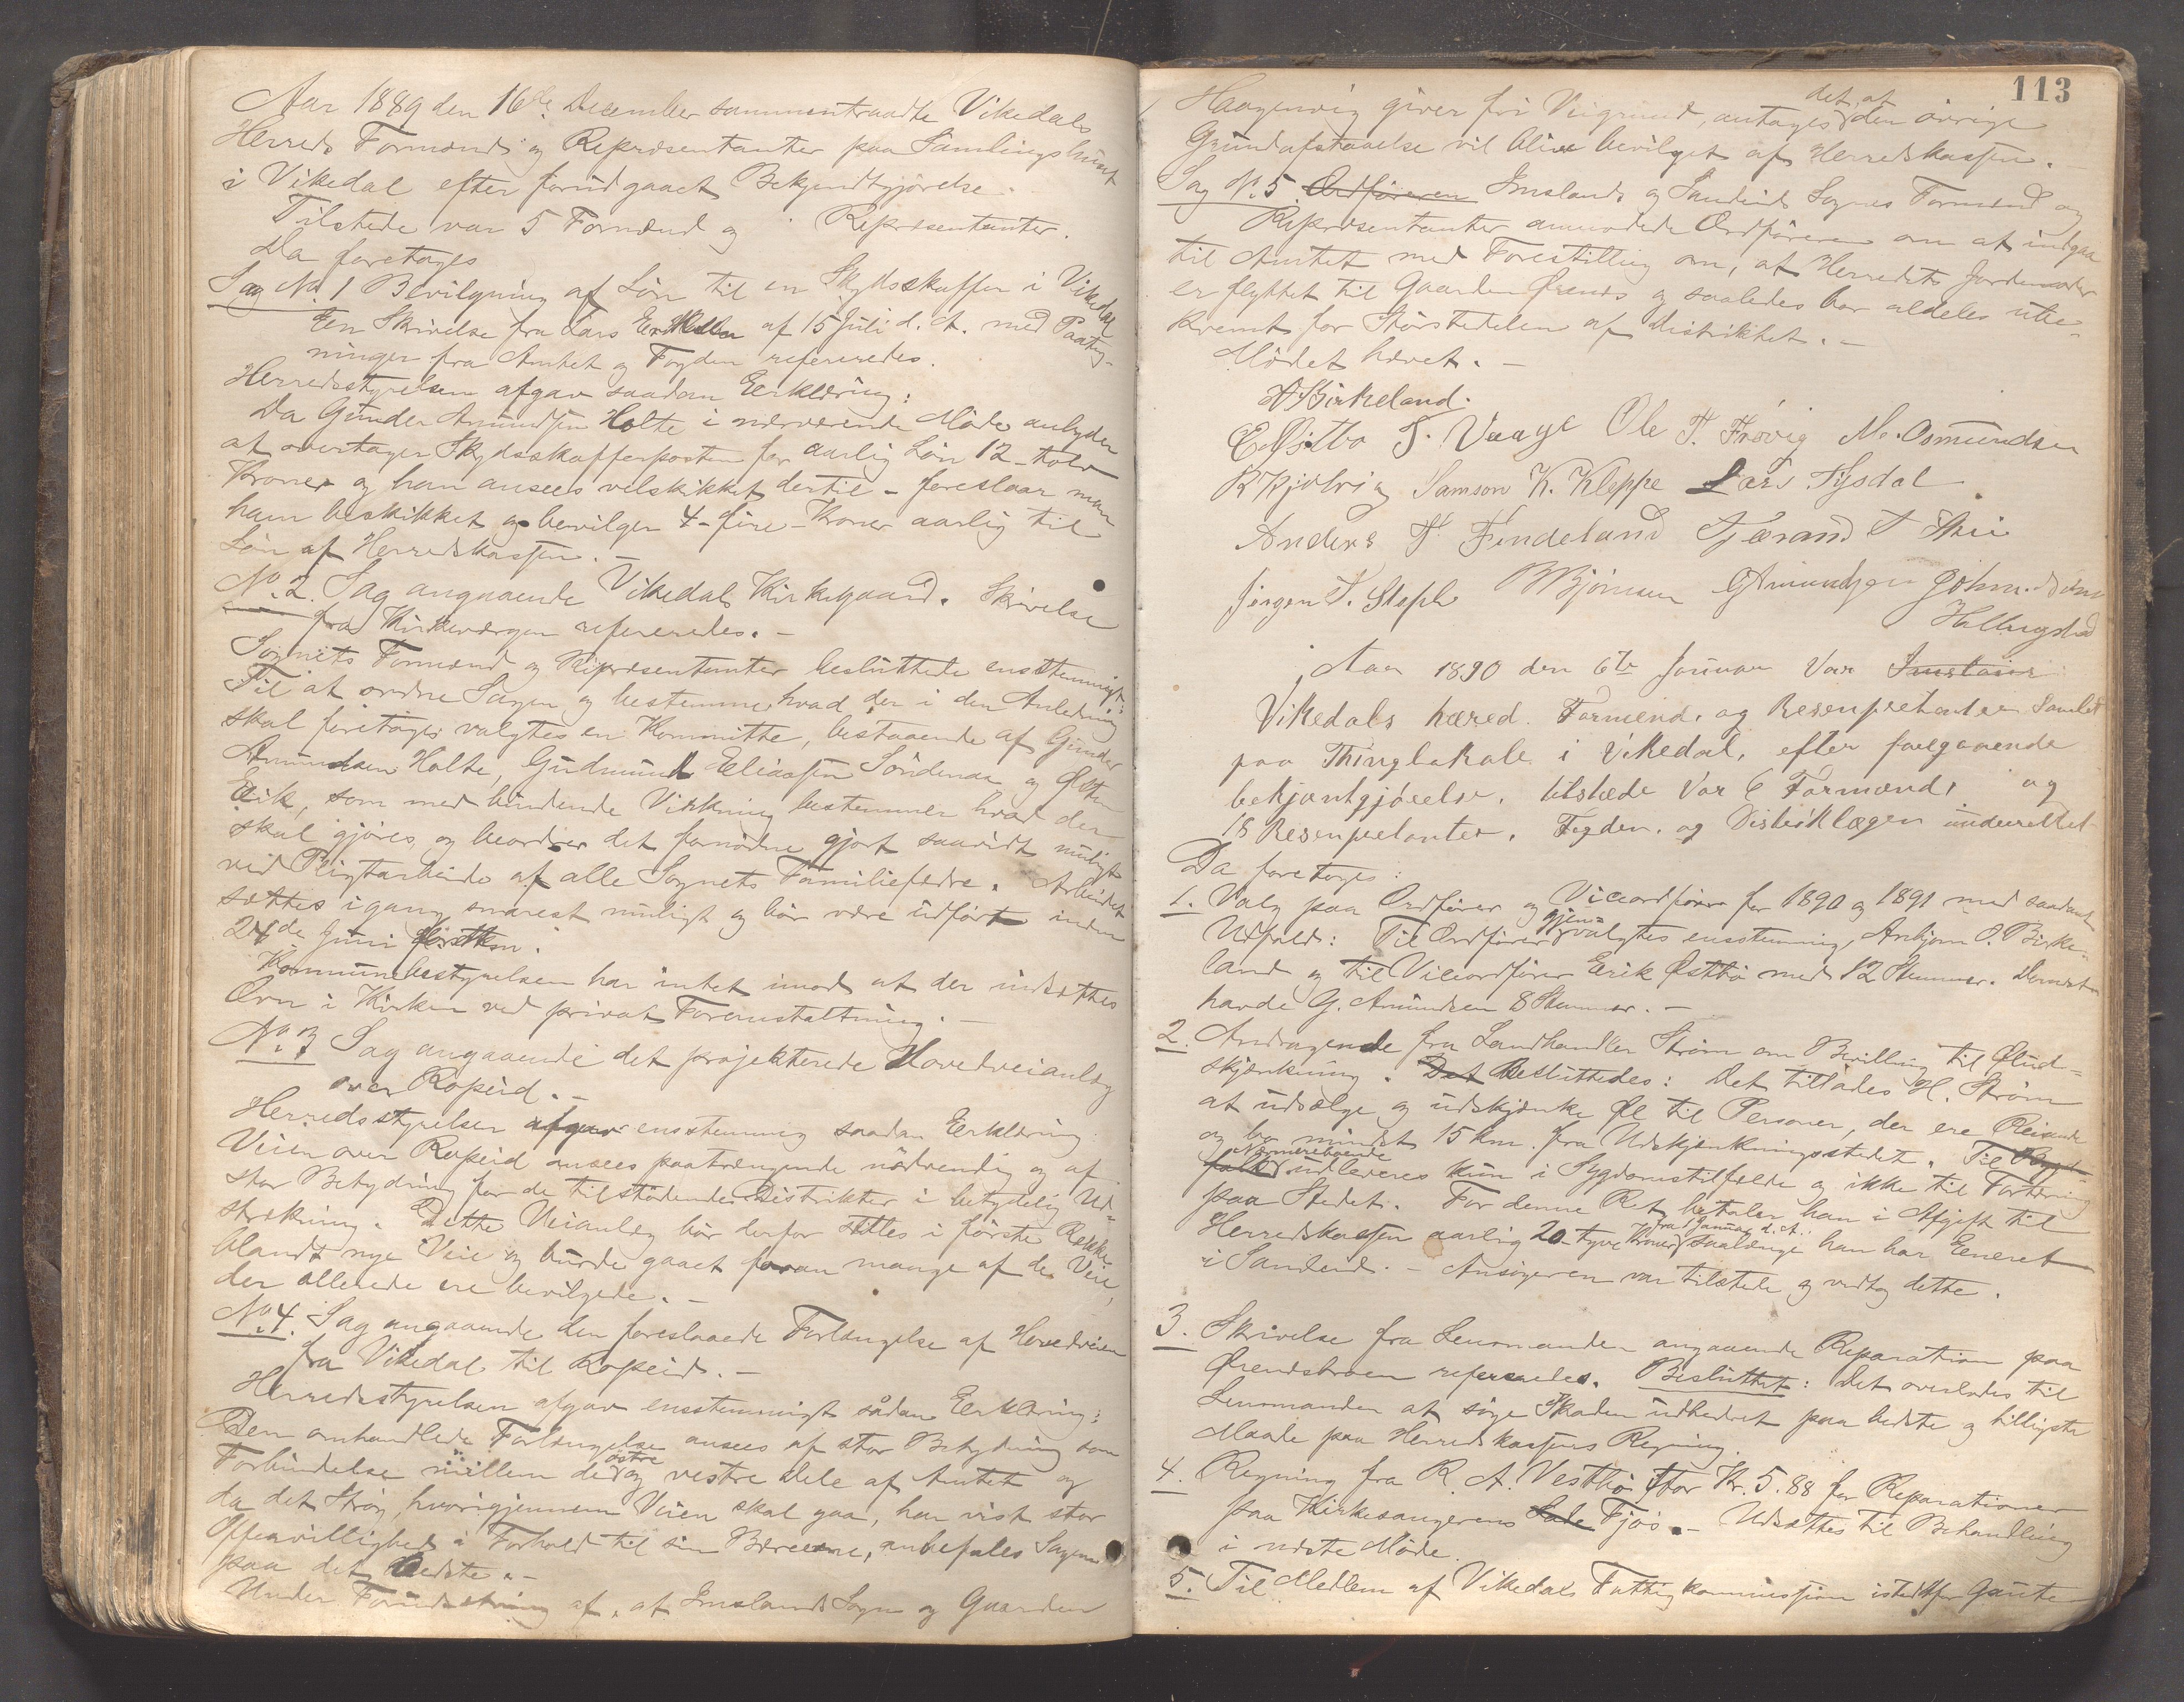 Aar 1889 den 16de December sammentraadte Vikedals
Herreds Formænd og Repræsentanter paa Samlingshuset
i Vikedal efter forudgaaet Bekjendtgjörelse.
Tilstede var 5 Formænd og Repræsentanter.
Da foretoges
Sag No. 1 Bevilgning af Lön til en Skydsskaffer i Vikedal
Een Skrivelse fra Lars af 15 Juli d. A. med Paateg-
ninger fra Amtet og Fogden refereredes.
Herredsstyrelsen afgav saadan Eerklæring:
Da Gunder Amundsen Holte i nærværende Möde anbyder
at overtager Skydsskafferposten for aarlig Lön 12-tolv
Kroner og han ansees velskikket dertil - foreslaar man
ham beskikket og bevilger 4-fire-Kroner aarlig til
Lön af Herredskassen. -
No. 2. Sag angaaende Vikedals Kirkegaard. Skrivelse
fra Kirkeværgen refereredes. -
Sognets Formænd og Repræsentanter besluttede ensstemmigt:
Til at ordne Sagen og bestemme hvad der i den Anledning
skal foretages valgtes en Kommitte, bestaaende af Gunder
Amundsen Holte, Gudmund Eliassen Söndenaa og Østen
Eeik, som med bindende Virkning bestemmer hvad der
skal gjöres og beordrer det fornödne gjort saavidt muligt
ved Pligtarbeide af alle Sognets Familiefædre. Arbeidet
sættes igang snarest muligt og bör være udfört inden
24de Juni förstkm.
Kommunebestyrelsen har intet imod at der indsættes
Ovn i Kirken ved privat Foranstaltning. -
No. 3 Sag angaaende det projekterede Hovedveianlæg
over Ropeid. -
Herredsstyrelsen afgav ensstemmig saadan Eerklæring:
Veien over Ropeid ansees paatrængende nödvendig og af
stor Betydning for de tilstödende Distrikter i betydelig Ud-
strækning. Dette Veianlæg bör derfor sættes i förste Række
blandt nye Veie og burde gaaet foran mange af de Veie,
der allerede ere bevilgede. -
No. 4. Sag angaaende den foreslaaede Forlængelse af Hovedveien
fra Vikedal til Ropeid. -
Herredsstyrelsen afgav ensstemmigt sådan Eerklæring:
Den omhandlede Forlængelse ansees af stor Betydning som
Forbindelse mellem de östre og vestre Dele af Amtet og
da det Strög, hvorigjennem Veien skal gaa, har vist stor
Offervillighed i Forhold til sin Bæreevne, anbefales Sagen
paa det bedste. -
Under Forudsætning af, at Imslands Sogn og Gaarden
113
Haagenvig giver fri Veigrund, antages det, at den övrige
Grundafstaaelse vil blive bevilget af Herredskassen.
Sag N. 5. Ordföreren Imslands og Sandeids Sognes Formænd og
Repræsentanter anmodede Ordföreren om at indgaa
til Amtet med Forestilling om, at Herredets Jordemoder
er flyttet til Gaarden Ørends og saaledes bor aldeles ube-
kvemt for Störstedelen af Distriktet. -
Mödet hævet. -
A Birkeland.
E Østbø T. Vaage Ole T. Frøvig M. Osmundsen
R Kjølvig Samson K. Kleppe Lars Tysdal
Anders T Findeland Tjerand T
Jörgen T. B Bjørnsen G Amundsen John
Hallingstad
Aar 1890 den 6te Januar Var Imsland
Vikedals hæred. Formend. og Resenpretanter Samlet
paa Thinglokale i Vikedal, efter forgaaende
bekjentgjörelse. tilstede Var 6 Formænd, og
18 Resenpretanter. Fogden. og Distriklægen underrettet
Da foretoges:
1. Valg paa Ordförer og Viceordförer for 1890 og 1891 med saadant
Udfald: Til Ordförer gjen-valgtes ensstemmig, Anbjørn O. Birke-
land og til Viceordförer Eerik Østbø med 12 Stemmer. Dernæst
havde G. Amundsen 8 Stemmer. -
2. Andragende fra Landhandler Ström om Bevilling til Øllud-
skjænkning. Det Besluttedes: Det tillades H. Ström
at udsælge og udskjænke Øl til Personer, der ere Reisende
og bor mindst 15 km. fra Udskjænkningsstedet. Til Byg-
folk Nærmereboende udleveres kun i Sygdomstilfælde og ikke til Fortæring
paa Stedet. For denne Ret betaler han i Afgift til
Herredskassen aarlig 20-tyve Kroner fra 1 Januar d. A. saalænge han har Eeneret
i Sandeid. - Ansögeren var tilstede og vedtog dette.
3. Skrivelse fra Lensmanden angaaende Reparation paa
Ørendsbroen refereredes. Besluttet: Det overlades til
Lensmanden at söge Skaden udbedret paa bedste og billigste
Maade paa Herredskassens Regning.
4. Regning fra R. A. Vestbø stor Kr. 5.88 for Reparationer
paa Kirkesangerens Lade Fjös. - Udsættes til Behandling
i næste Möde.
5. Til Medlem af Vikedals Fattigkommission istedetfor Gaute